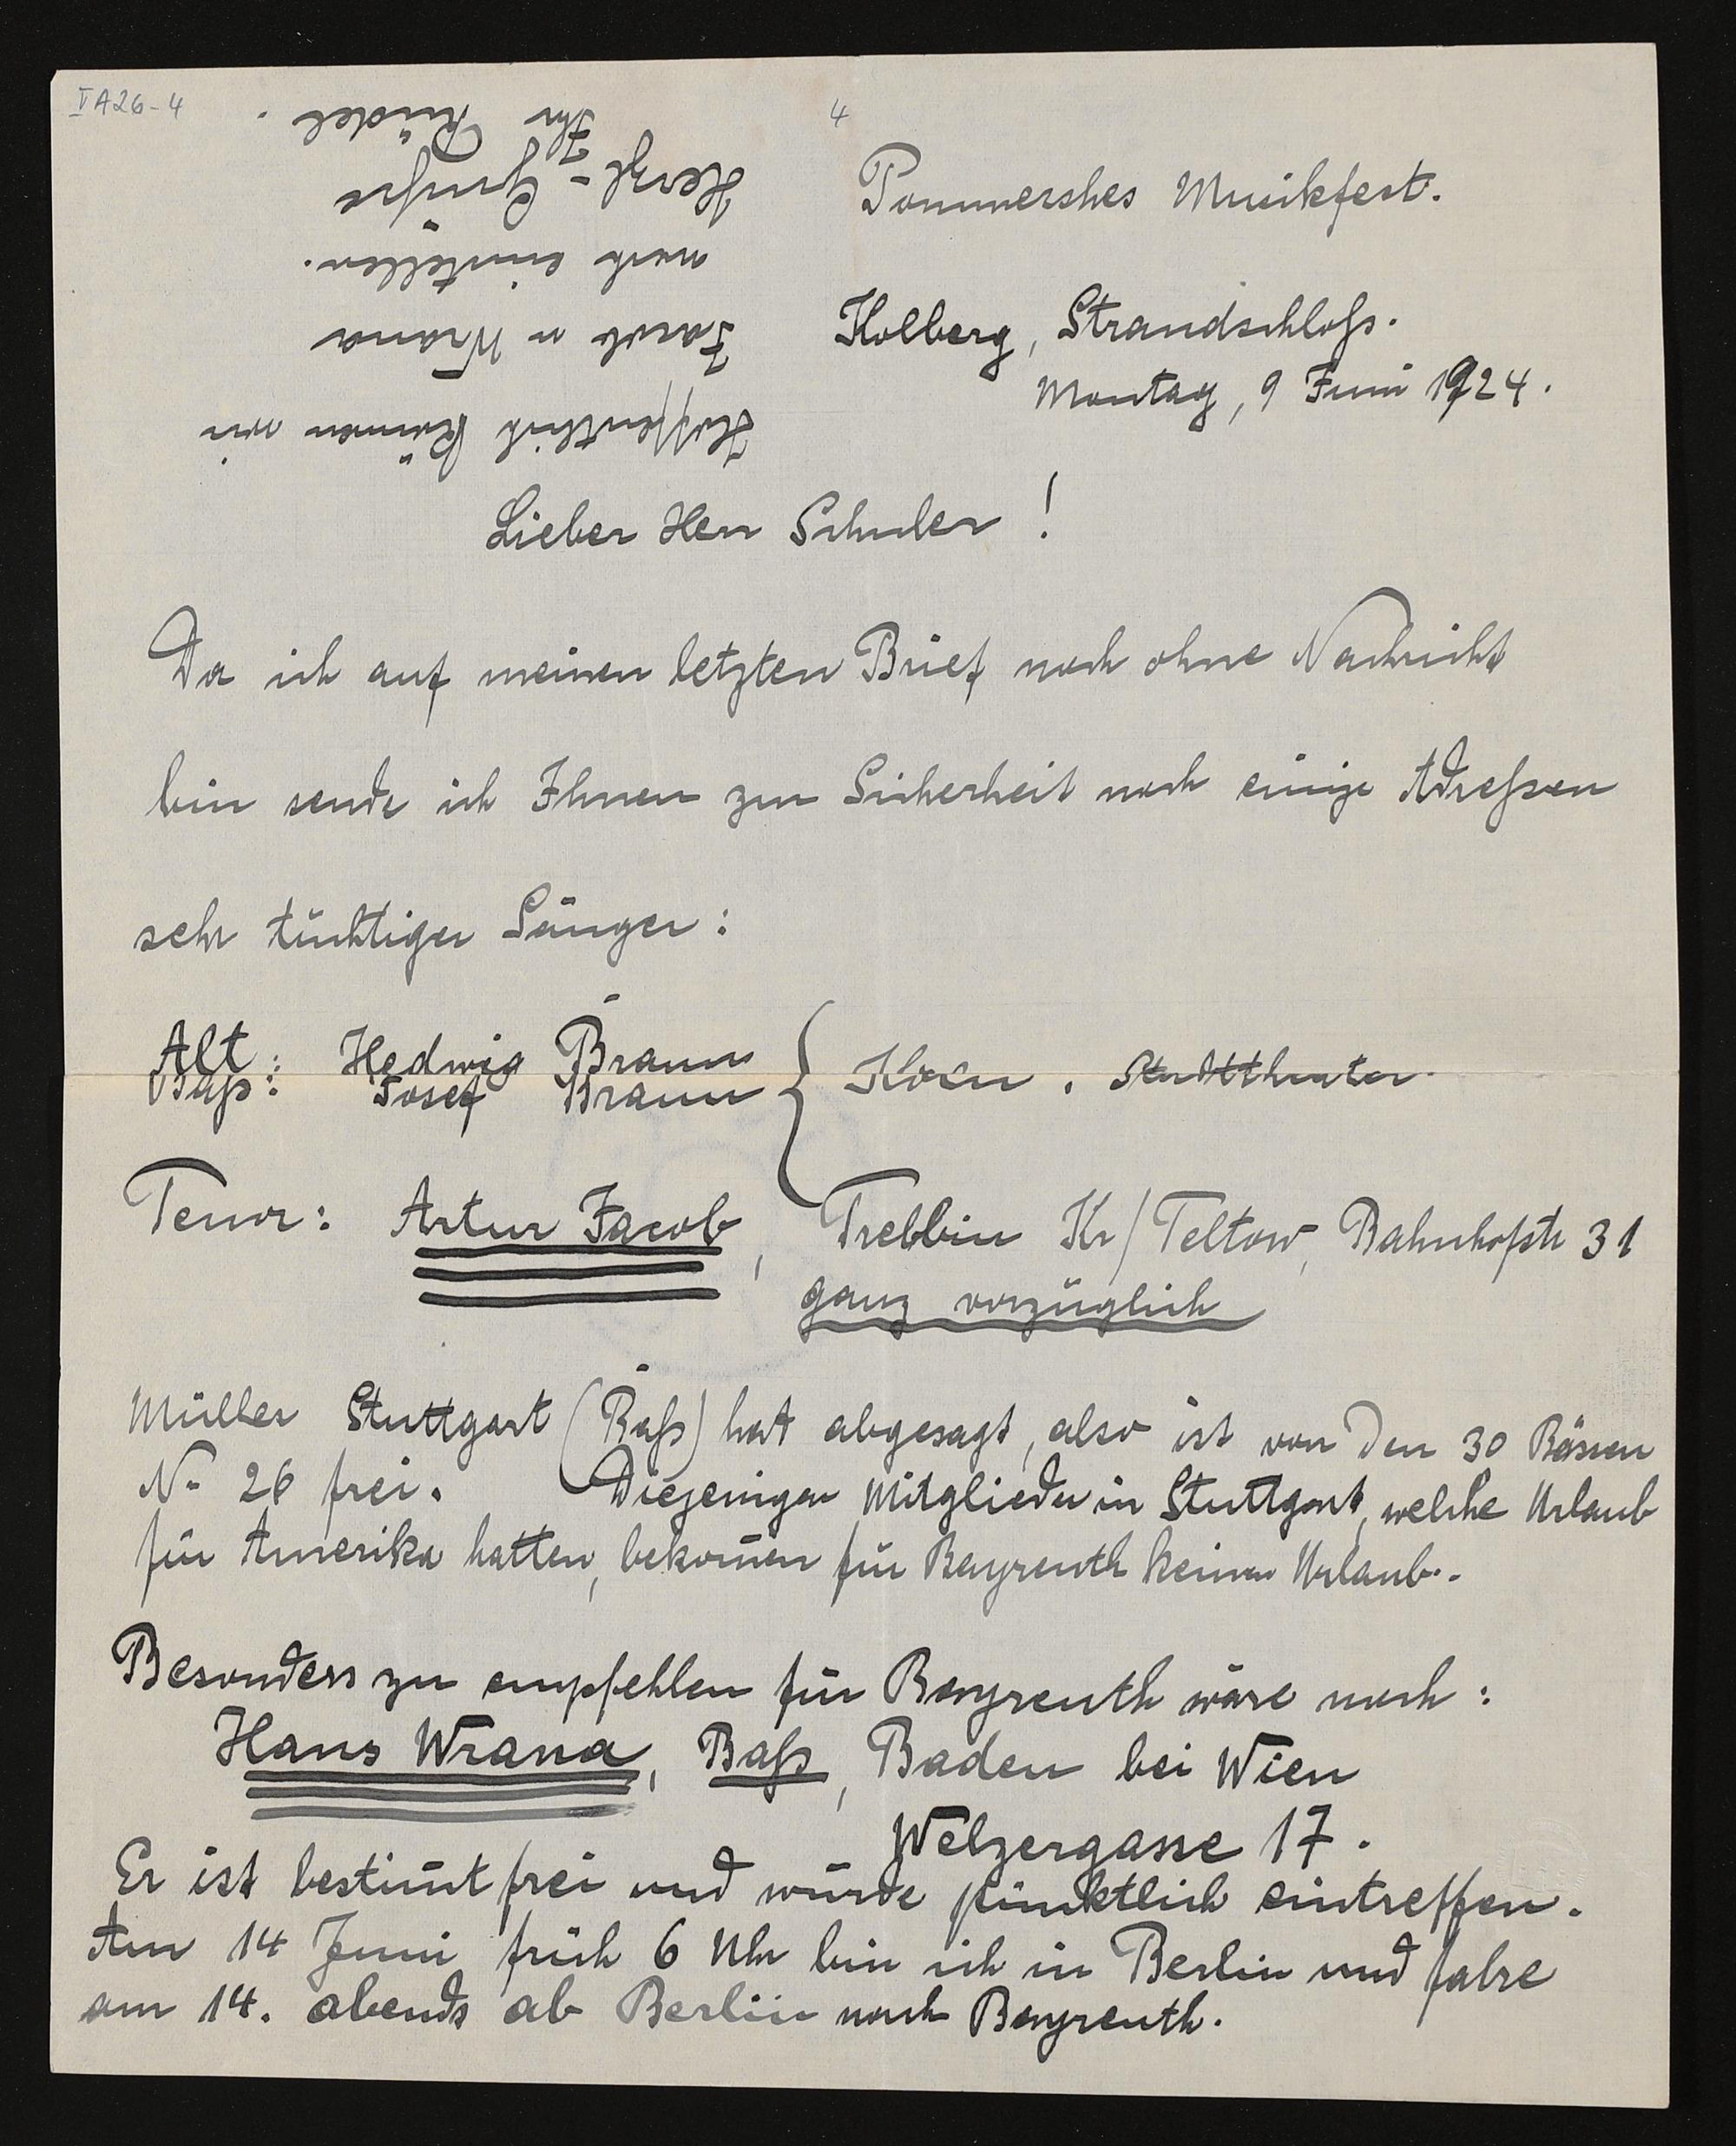 VA26-4
4
Pommersches Musikfest.
Kolberg, Strandschloß.
Montag, 9 Juni 1924.
Lieber Herr Schuler!
Da ich auf meinen letzten Brief noch ohne Nachricht
bin sende ich Ihnen zur Sicherheit noch einige Adreßen
sehr tüchtiger Sänger:
Alt: Hedwig Braun
Baß: Josef Braun
Stadttheater.
Tenor: Artur Jacob, Trebbin Kr/Teltow, Bahnhofstr 31
ganz vorzüglich
Müller Stuttgart (Baß) hat abgesagt, also ist von den 30 Bässen
No 26 frei. Diejenigen Mitglieder in Stuttgart, welche Urlaub
für Amerika hatten, bekom̄en für Bayreuth keinen Urlaub.
Besonders zu empfehlen für Bayreuth wäre noch:
Hans Wrana, Baß, Baden bei Wien
Welzergasse 17.
Er ist bestim̄t frei und würde pünktlich eintreffen.
Am 14 Juni früh 6 Uhr bin ich in Berlin und fahre
am 14. abends ab Berlin nach Bayreuth.
Hoffentlich kön̄en wir
Jacob u Wrana
noch einstellen.
Herzl- Grüße
Ihr Rüdel.